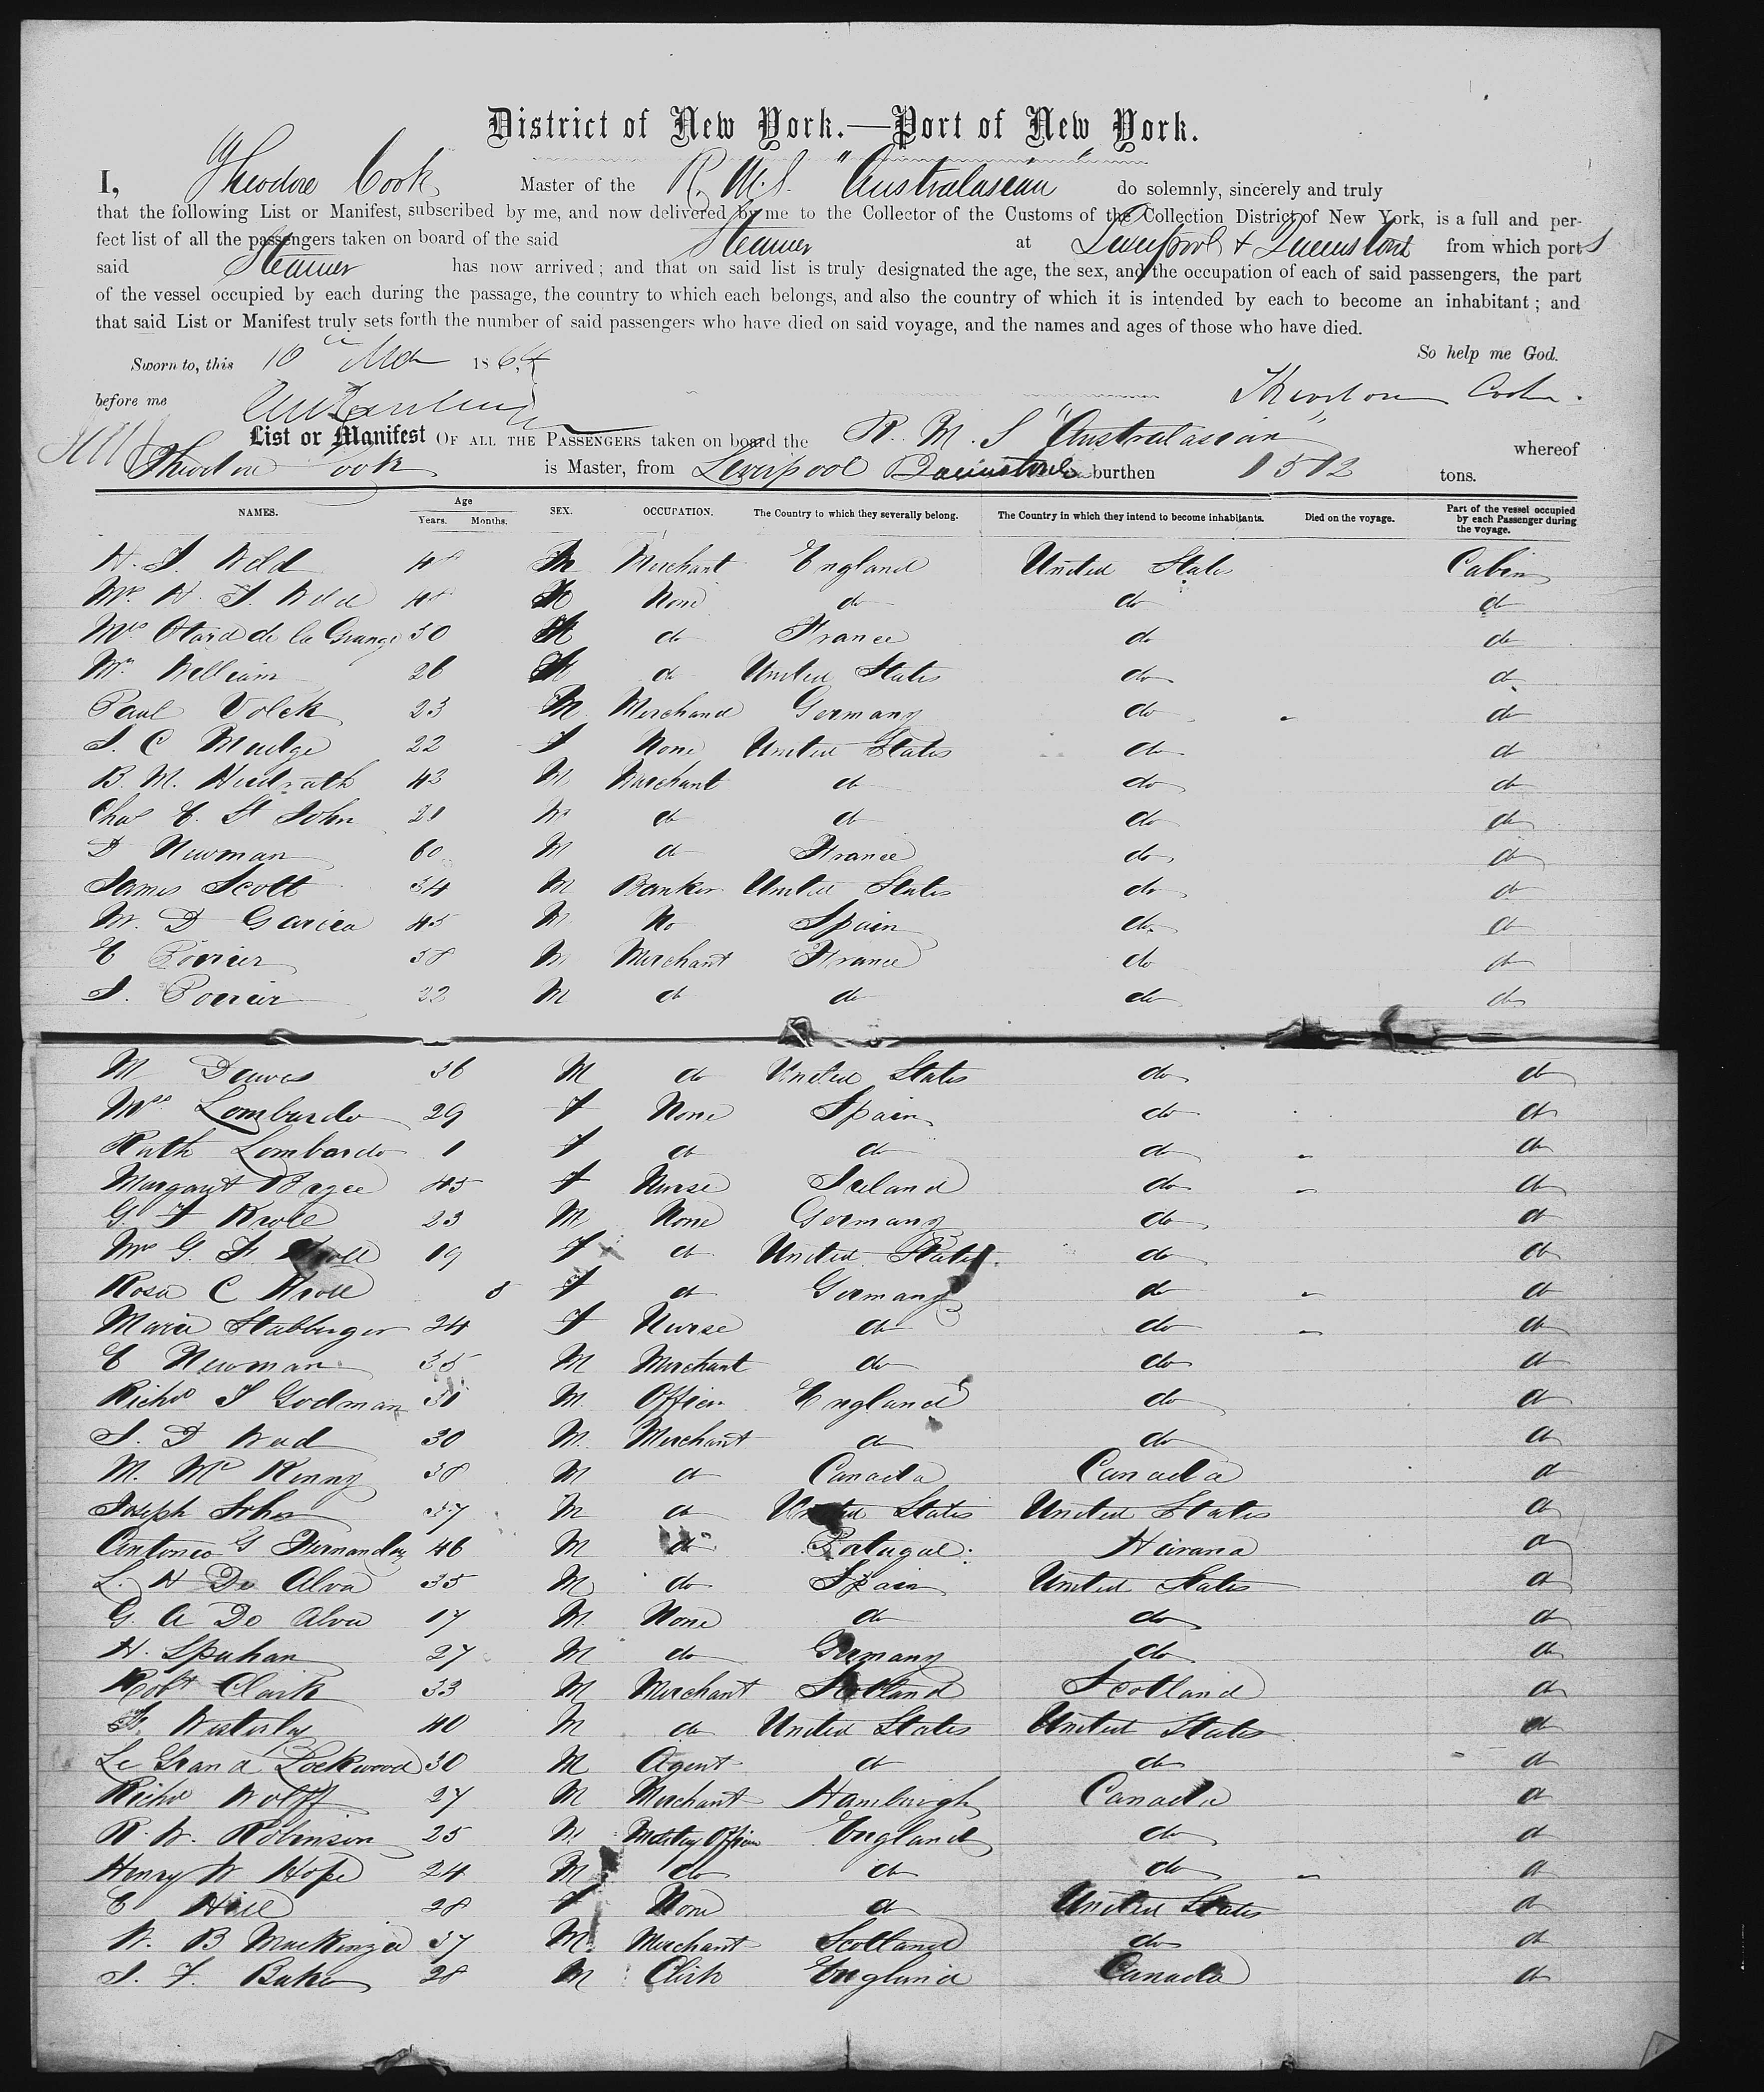 District of New York.—Port of New York.
I, Theodore Cook Master of the R. M. S. "Australasian" do solemnly, sincerely and truly
that the following List or Manifest, subscribed by me, and now delivered by me to the Collector of the Customs of the Collection District of New York, is a full and per-
fect list of all the passengers taken on board of the said Steamer at Liverpool & Queenstown from which ports
said Steamer has now arrived; and that on said list is truly designated the age, the sex, and the occupation of each of said passengers, the part
of the vessel occupied by each during the passage, the country to which each belongs, and also the country of which it is intended by each to become an inhabitant; and
that said List or Manifest truly sets forth the number of said passengers who have died on said voyage, and the names and ages of those who have died.
Sworn to, this 10 1864 So help me God.
before me Theodore Cook.
List or Manifest OF ALL THE PASSENGERS taken on board the R. M. S "Australasian" whereof
Theodore Cook is Master, from Liverpool Queenstown burthen 1512 tons.
NAMES. Age Years. Months. SEX. OCCUPATION. The Country to which they severally belong. The Country in which they intend to become inhabitants. Died on the voyage. Part of the vessel occupied by each Passenger during the voyage.
48 M Merchant England United States Cabin
Mrs 48 None do do do
Mrs Otard de la Grange 30 do France do do
26 do United States do do
Paul Volck 23 M Merchand Germany do do
S. C Mudge 22 F None United States do do
B. M. 43 M Merchant do do do
Chas E. St John 21 M do do do do
D Newman 60 M do France do do
James Scott 34 M Banker United States do do
M. D Garica 45 M No Spain do do
E Poirier 38 M Merchant France do do
J. Poirier 22 M do do do do
M Dawes 36 M do United States do do
Mrs Lombardo 29 F None Spain do do
Ruth Lombardo 1 F do do do do
Margaret 45 F Nurse Ireland do do
G. F Kroll 23 M None Germany do do
Mrs G. F. Kroll 19 F do United States. do do
Rosa C Kroll 8 F do Germany do do
Maria Stabberger 24 F Nurse do do do
E Newman 35 M Merchant do do do
Richd J Godman 31 M Officer England do do
J. D 30 M. Merchant do do do
M. Mc Kenny 38 M do Canada Canada do
Joseph 37 M do United States United States do
Antonio G Fernandez 46 M do Portugal Havana do
L. H De Alva 35 M do Spain United States do
G. A De Alva 17 M None do do do
H. Spuhan 27 M do Germany do do
Robt Clark 33 M Merchant Scotland Scotland do
Westerly 40 M do United States United States do
Le Grand Lockwood 30 M Agent do do do
Richd Wolff 27 M Merchant Hamburgh Canada do
R. W. Robinson 25 M England do do
Henry W Hope 24 M do do do do
E Hill 28 F None do United States do
W. B MacKenzie 37 M. Merchant Scotland do do
J. F. Baker 28 M Clerk England Canada do